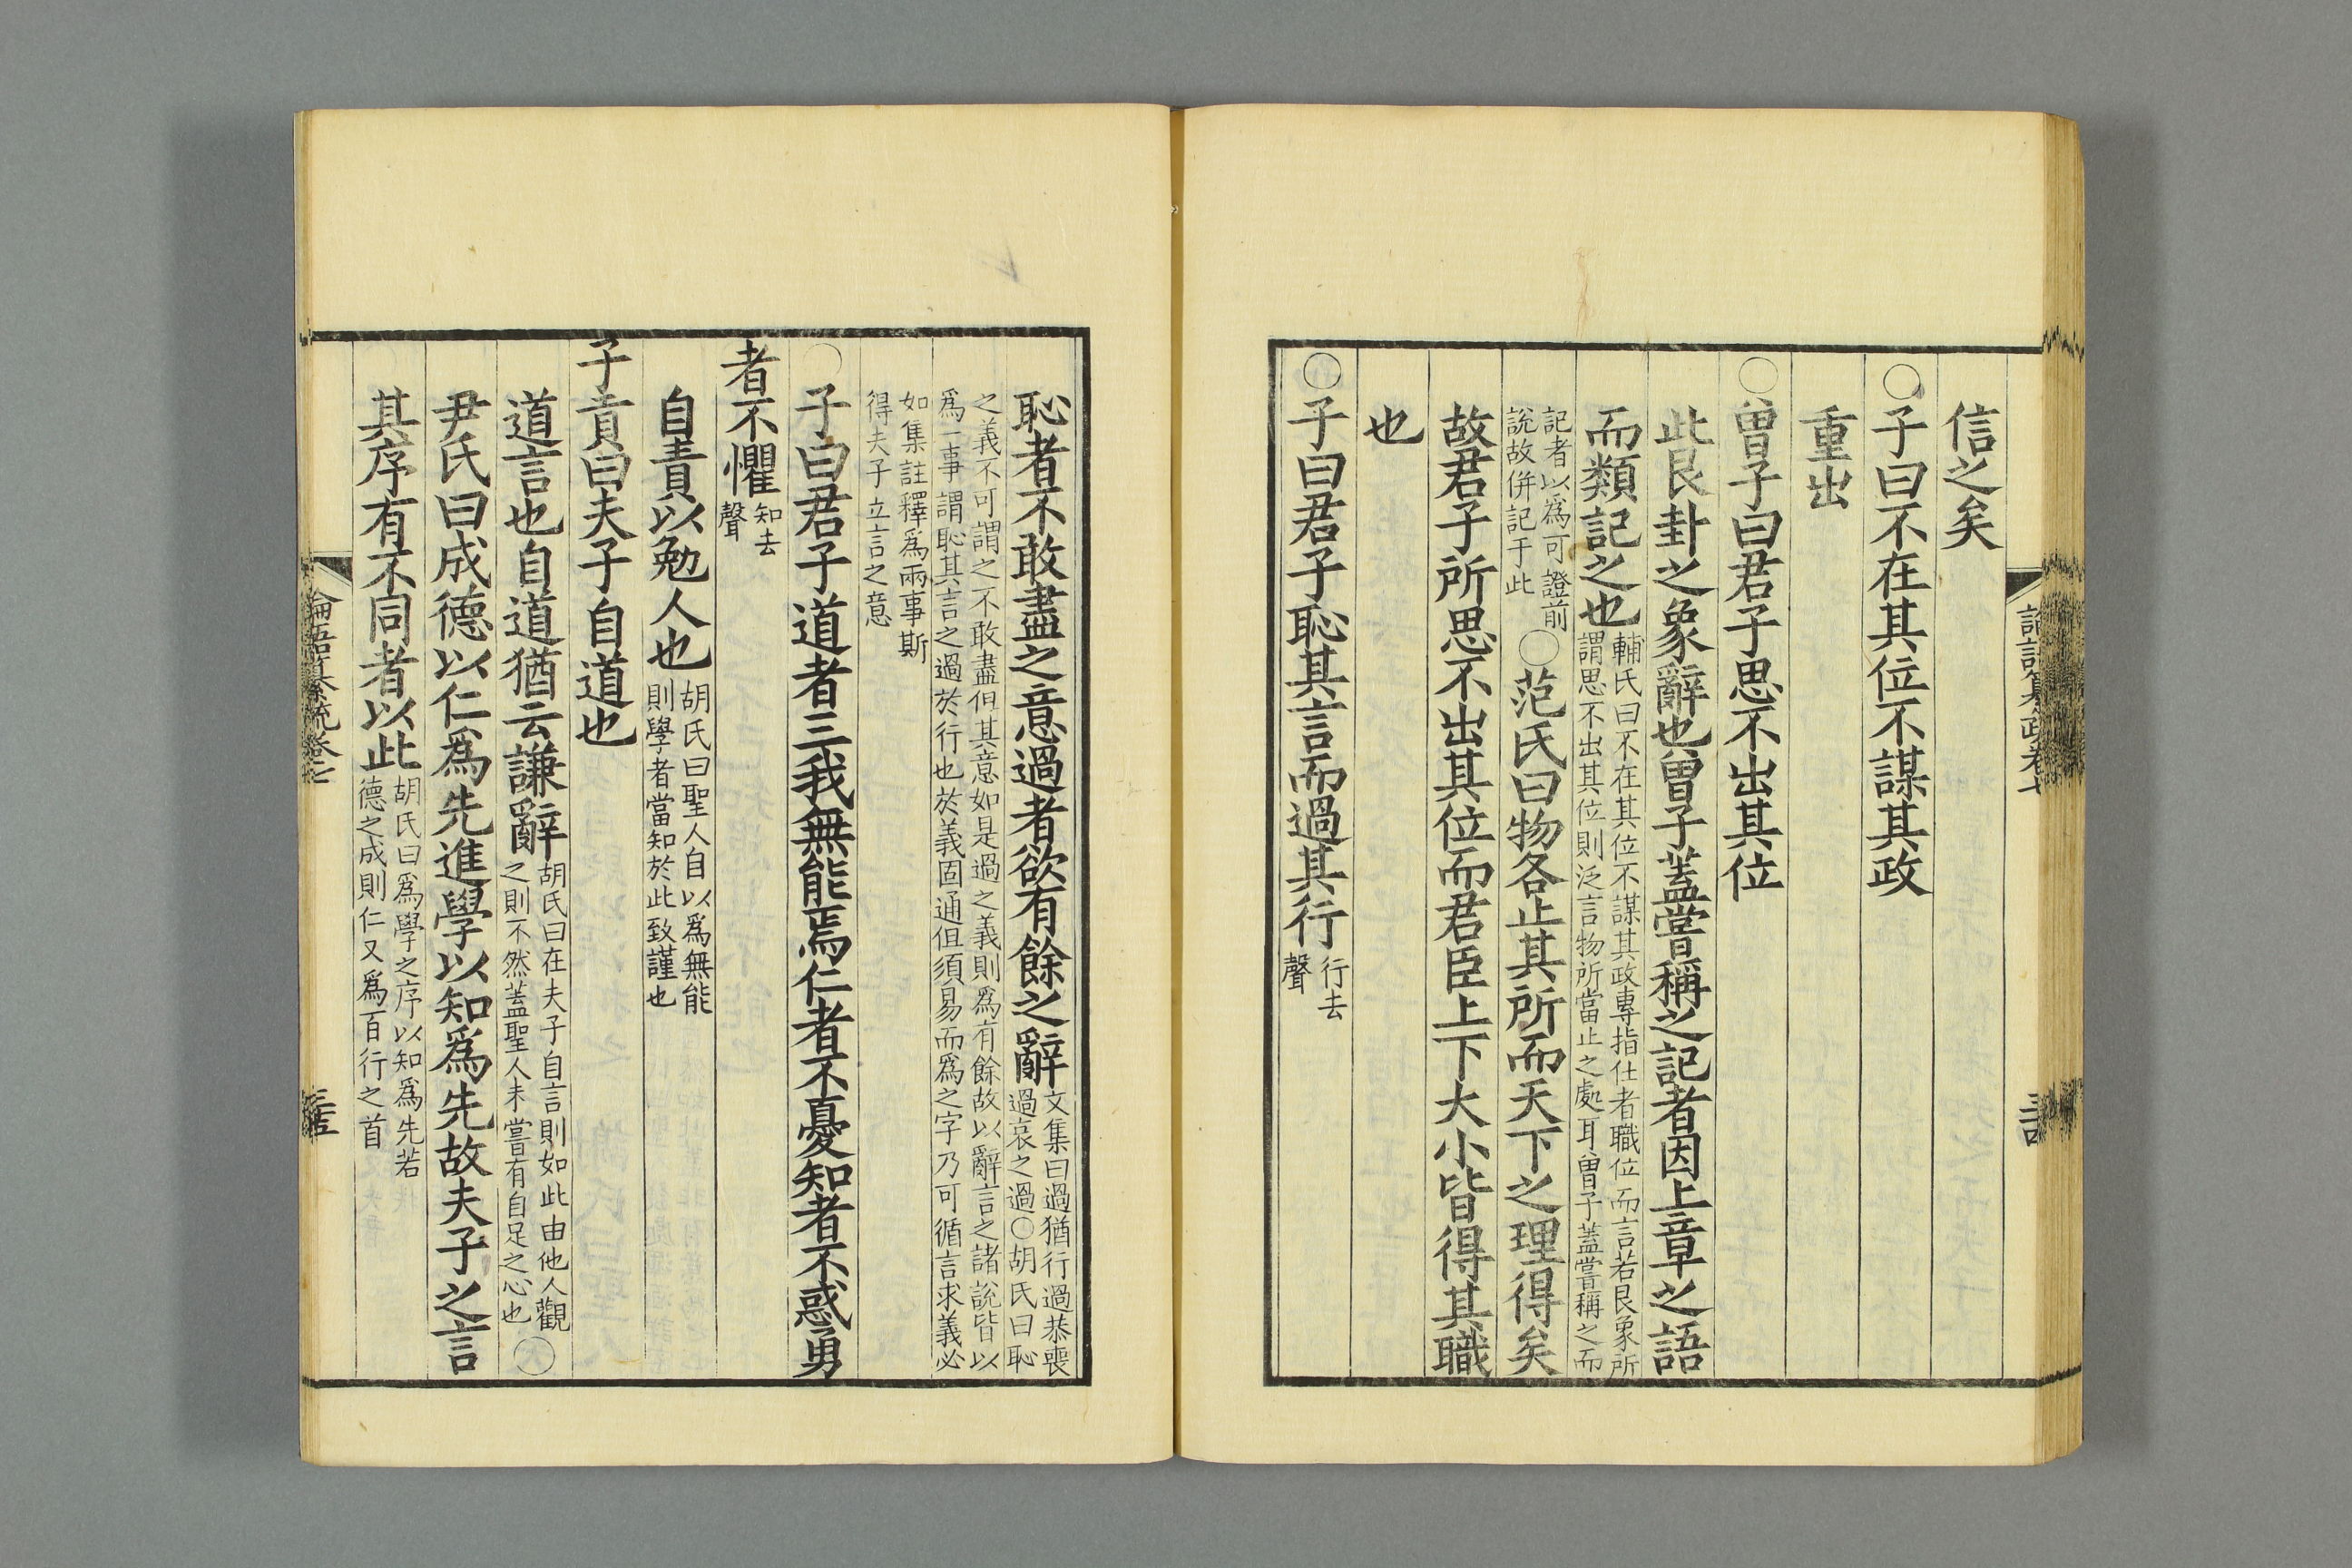 信之矣
○子曰不在其位不謀其政
重出
○曾子曰君子思不出其位
此艮卦之象辭也曾子蓋嘗稱之記者因上章之語
而類記之也輔氏曰不在其位不謀其政專指仕者職位而言若艮象所
謂思不出其位則泛言物所當止之處耳曾子蓋嘗稱之而
記者以爲可證前
說故併記于此○范氏曰物各止其所而天下之理得矣
故君子所思不出其位而君臣上下大小皆得其職
也
○子曰君子恥其言而過其行行去
聲
恥者不敢盡之意過者欲有餘之辭文集曰過猶行過恭喪
過哀之過○胡氏曰恥
之義不可謂之不敢盡但其意如是過之義則爲有餘故以辭言之諸說皆以
爲一事謂恥其言之過於行也於義固通但須易而爲之字乃可循言求義必
如集註釋爲兩事斯
得夫子立言之意
○子曰君子道者三我無能焉仁者不憂知者不惑勇
者不懼知去
聲
自責以勉人也胡氏曰聖人自以爲無能
則學者當知於此致謹也
子貢曰夫子自道也
道言也自道猶云謙辭胡氏曰在夫子自言則如此由他人觀
之則不然蓋聖人未嘗有自足之心也○
尹氏曰成德以仁爲先進學以知爲先故夫子之言
其序有不同者以此胡氏曰爲學之序以知爲先若
德之成則仁又爲百行之首
論語纂疏卷七